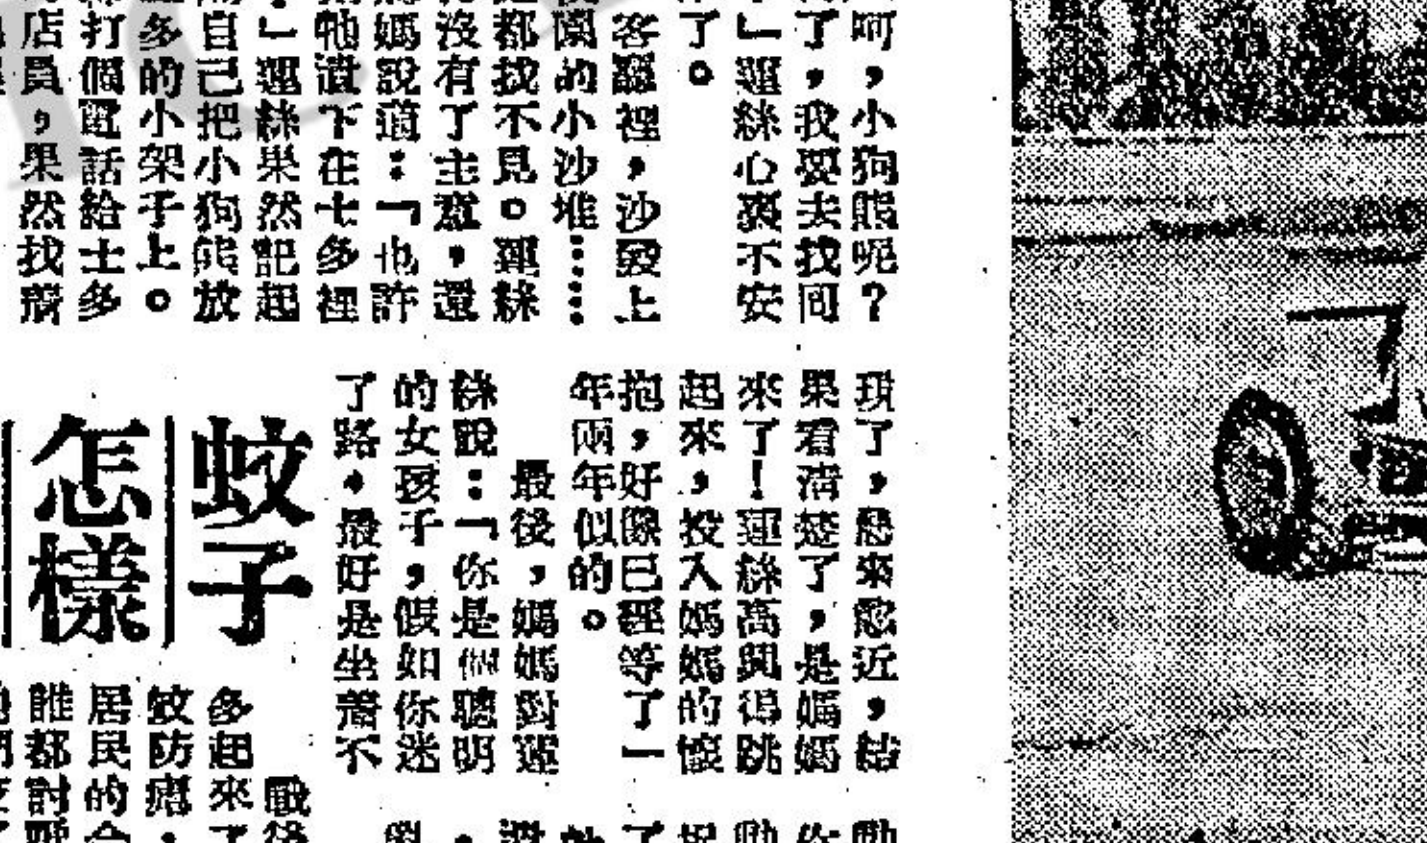 呵，小狗熊呢？
了，我要去找回
」蓮絲心裏不安
了。
客廳裡，沙發上
園的小沙堆……
都找不見。蓮絲
沒有了主意，還
媽說道：「也許
牠遺下在士多裡
」蓮絲果然記起
自己把小狗熊放
多的小架子上。
打個電話給士多
店員，果然找着
現了，愈來愈近，結
果看清楚了，是媽媽
來了！蓮絲高興得跳
起來，投入媽媽的懷
抱，好像已經等了一
年兩年似的。
最後，媽媽對蓮
絲說：「你是個聰明
的女孩子，假如你迷
了路，最好是坐着不
蚊子
怎樣
戰後
多起來了
蚊防瘧，
居民的合
誰都討厭